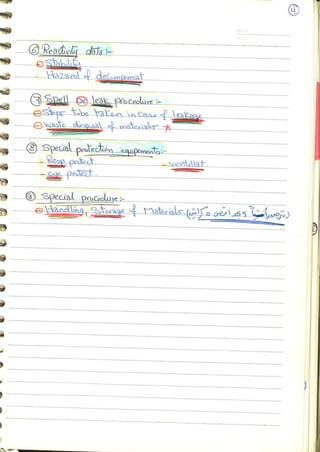 4
⑥ Reactivity data :-
Stability
- Hazard of decomposat
⑦ Spell or leak procedure :-
Steps tobe taken in case of leakage
waste disposal of materials
⑧ Special protection equepements :-
- Resp. protect. - ventillat.
- eye protect.
⑨ Special procedure :-
Handling, Storage of Materials.